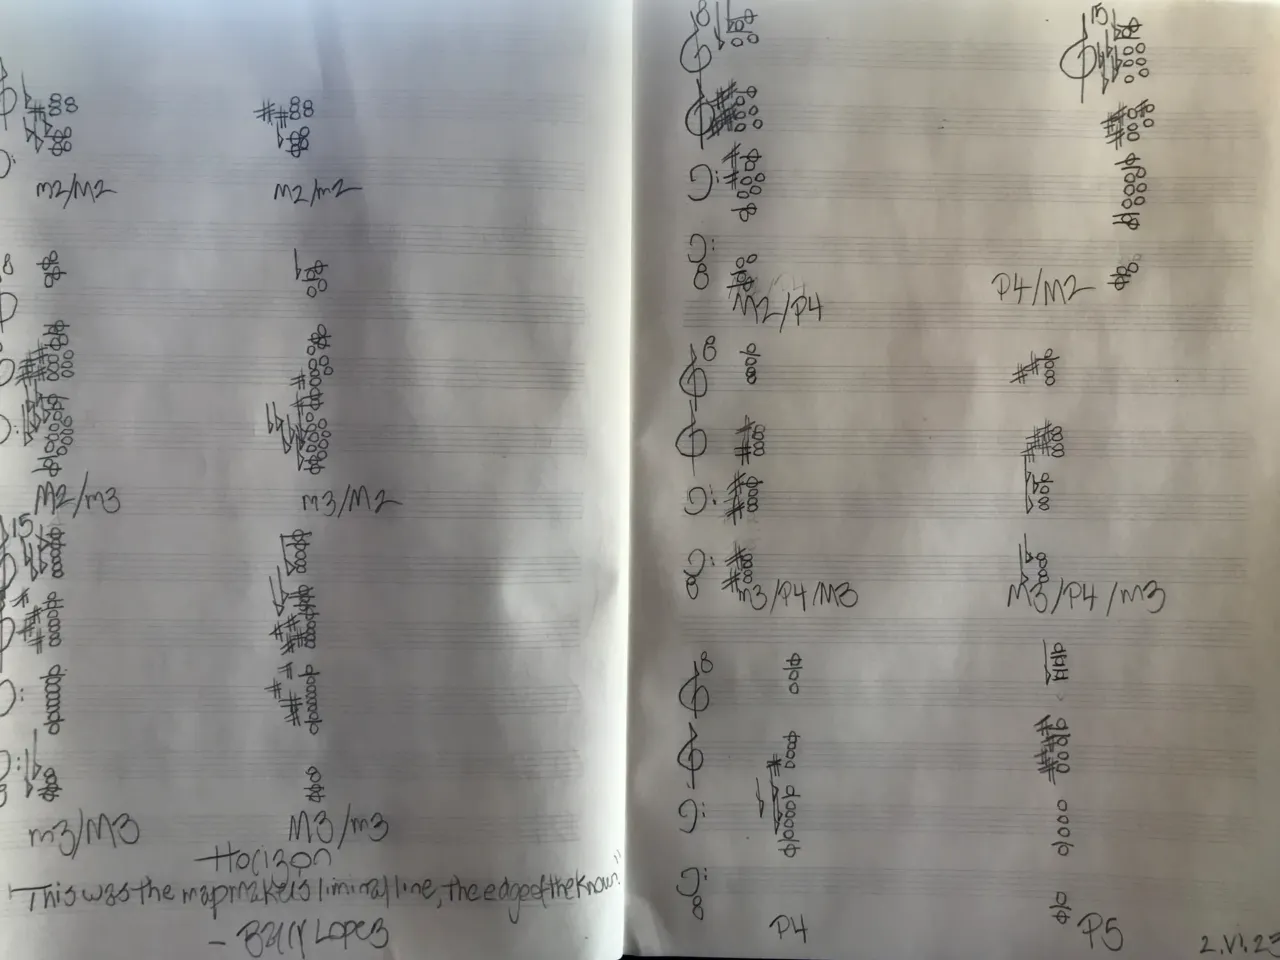 m2/M2
M2/m2
8
M2/m3
m3/M2
15
m3/M3
M3/m3
Horizon
"This was the mapmakers liminal line, the edge of the known."
- Barry Lopez
8
15
8
M2/P4
P4/M2
8
8
m3/P4/M3
M3/P4/m3
8
8
P4
P5
2.VI.25